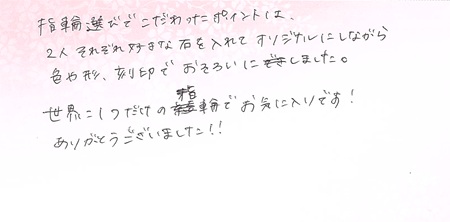 指輪選びでこだわったポイントは、
2人それぞれ好きな石を入れてオリジナルにしながら
色や形、刻印でおそろいにしました。
世界に1つだけの指輪でお気に入りです!
ありがとうございました!!